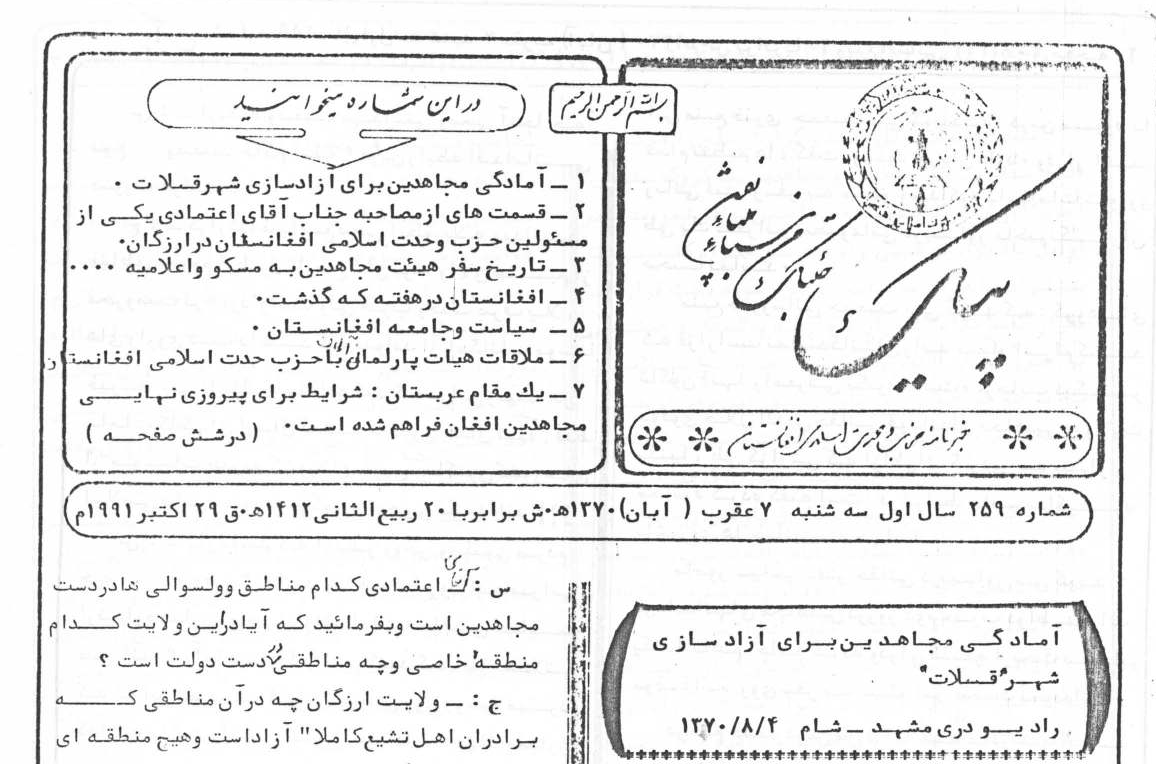 بسم الله الرحمن الرحیم
پیام
خبرنامه حزب وحدت اسلامی افغانستان
در این شماره میخوانید
۱ ـ آمادگی مجاهدین برای آزادسازی شهر قلات .
۲ ـ قسمت های از مصاحبه جناب آقای اعتمادی یکی از
مسئولین حزب وحدت اسلامی افغانستان در ارزگان.
۳ ـ تاریخ سفر هیئت مجاهدین به مسکو و اعلامیه ....
۴ ـ افغانستان در هفته که گذشت.
۵ ـ سیاست و جامعه افغانستان .
۶ ـ ملاقات هیات پارلمانی با حزب حدت اسلامی افغانستان
۷ ـ یك مقام عربستان : شرایط برای پیروزی نهایی
مجاهدین افغان فراهم شده است. ( در شش صفحه )
شماره ۲۵۹ سال اول سه شنبه ۷ عقرب ( آبان) ۱۳۷۰ه.ش برابر با ۲۰ ربیع الثانی ۱۴۱۲ه.ق ۲۹ اکتبر ۱۹۹۱م
آمادگی مجاهدین برای آزادسازی
شهر "قلات"
رادیو دری مشهد ـ شام ۱۳۷۰/۸/۴
س : آقای اعتمادی کدام مناطق وولسوالی ها در دست
مجاهدین است و بفرمائید که آیا در این ولایت کدام
منطقهٔ خاصی و چه مناطقی در دست دولت است ؟
ج : ـ ولایت ارزگان چه در آن مناطقی که
برادران اهل تشیع کاملا" آزاد است و هیچ منطقه ای